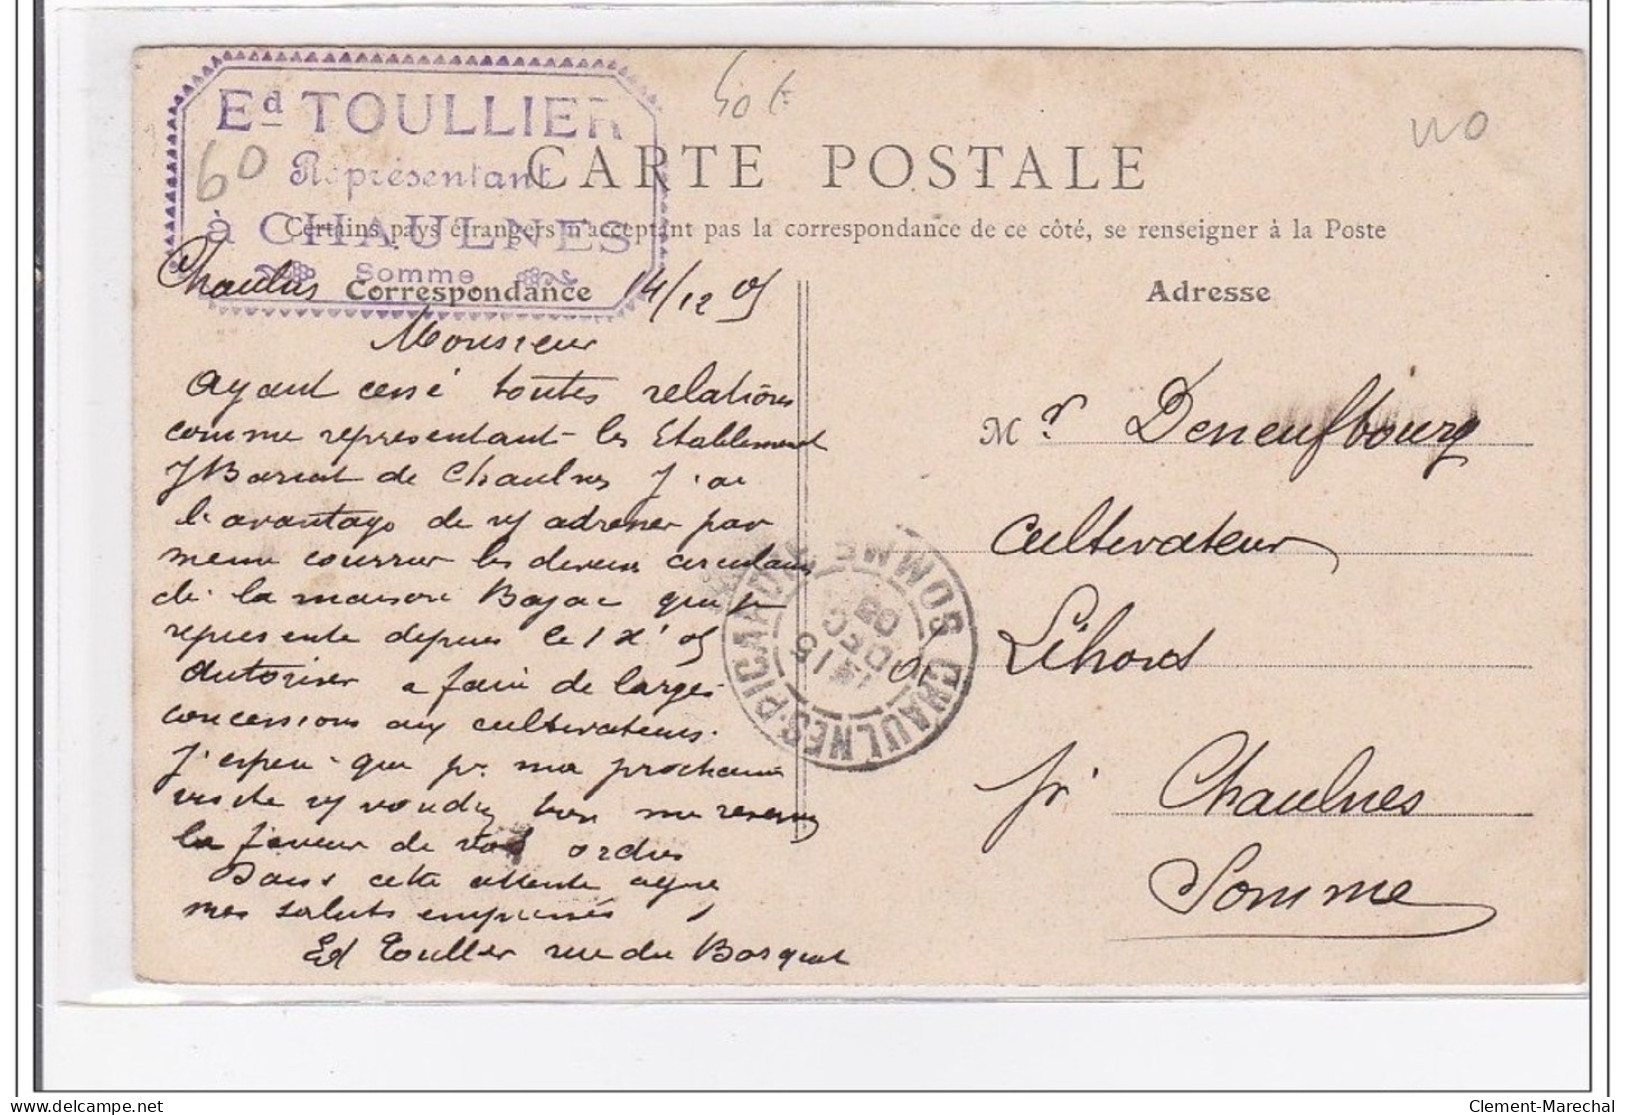 Ed TOULLIER
Représentant
à CHAULNES
Somme
60
50 E
CARTE POSTALE
Certains pays étrangers n'acceptent pas la correspondance de ce côté, se renseigner à la Poste
Correspondance
Adresse
Chaulnes 14/12 05
Monsieur
Ayant cessé toutes relations
comme representant les Etablement
J Bariat de Chaulnes J'ai
l'avantage de vs adresser par
meme courrier les deveux circulaires
de la maison Bajac que je
represente depuis le 1 Xe 05
Autoriser a faire de larges
concessions aux cultivateurs.
J'espere que pr ma prochaine
visite vs voudrez bien me reserver
la faveur de vos ordres
Dans cette attente agrer
mes saluts empressés
Ed Toullier rue du Bosquet
Mr Deneufbourg
Cultivateur
à Lihons
pr Chaulnes
Somme
CHAULNES-PICARDIE SOMME
15
DEC
05
Clement-Marechal